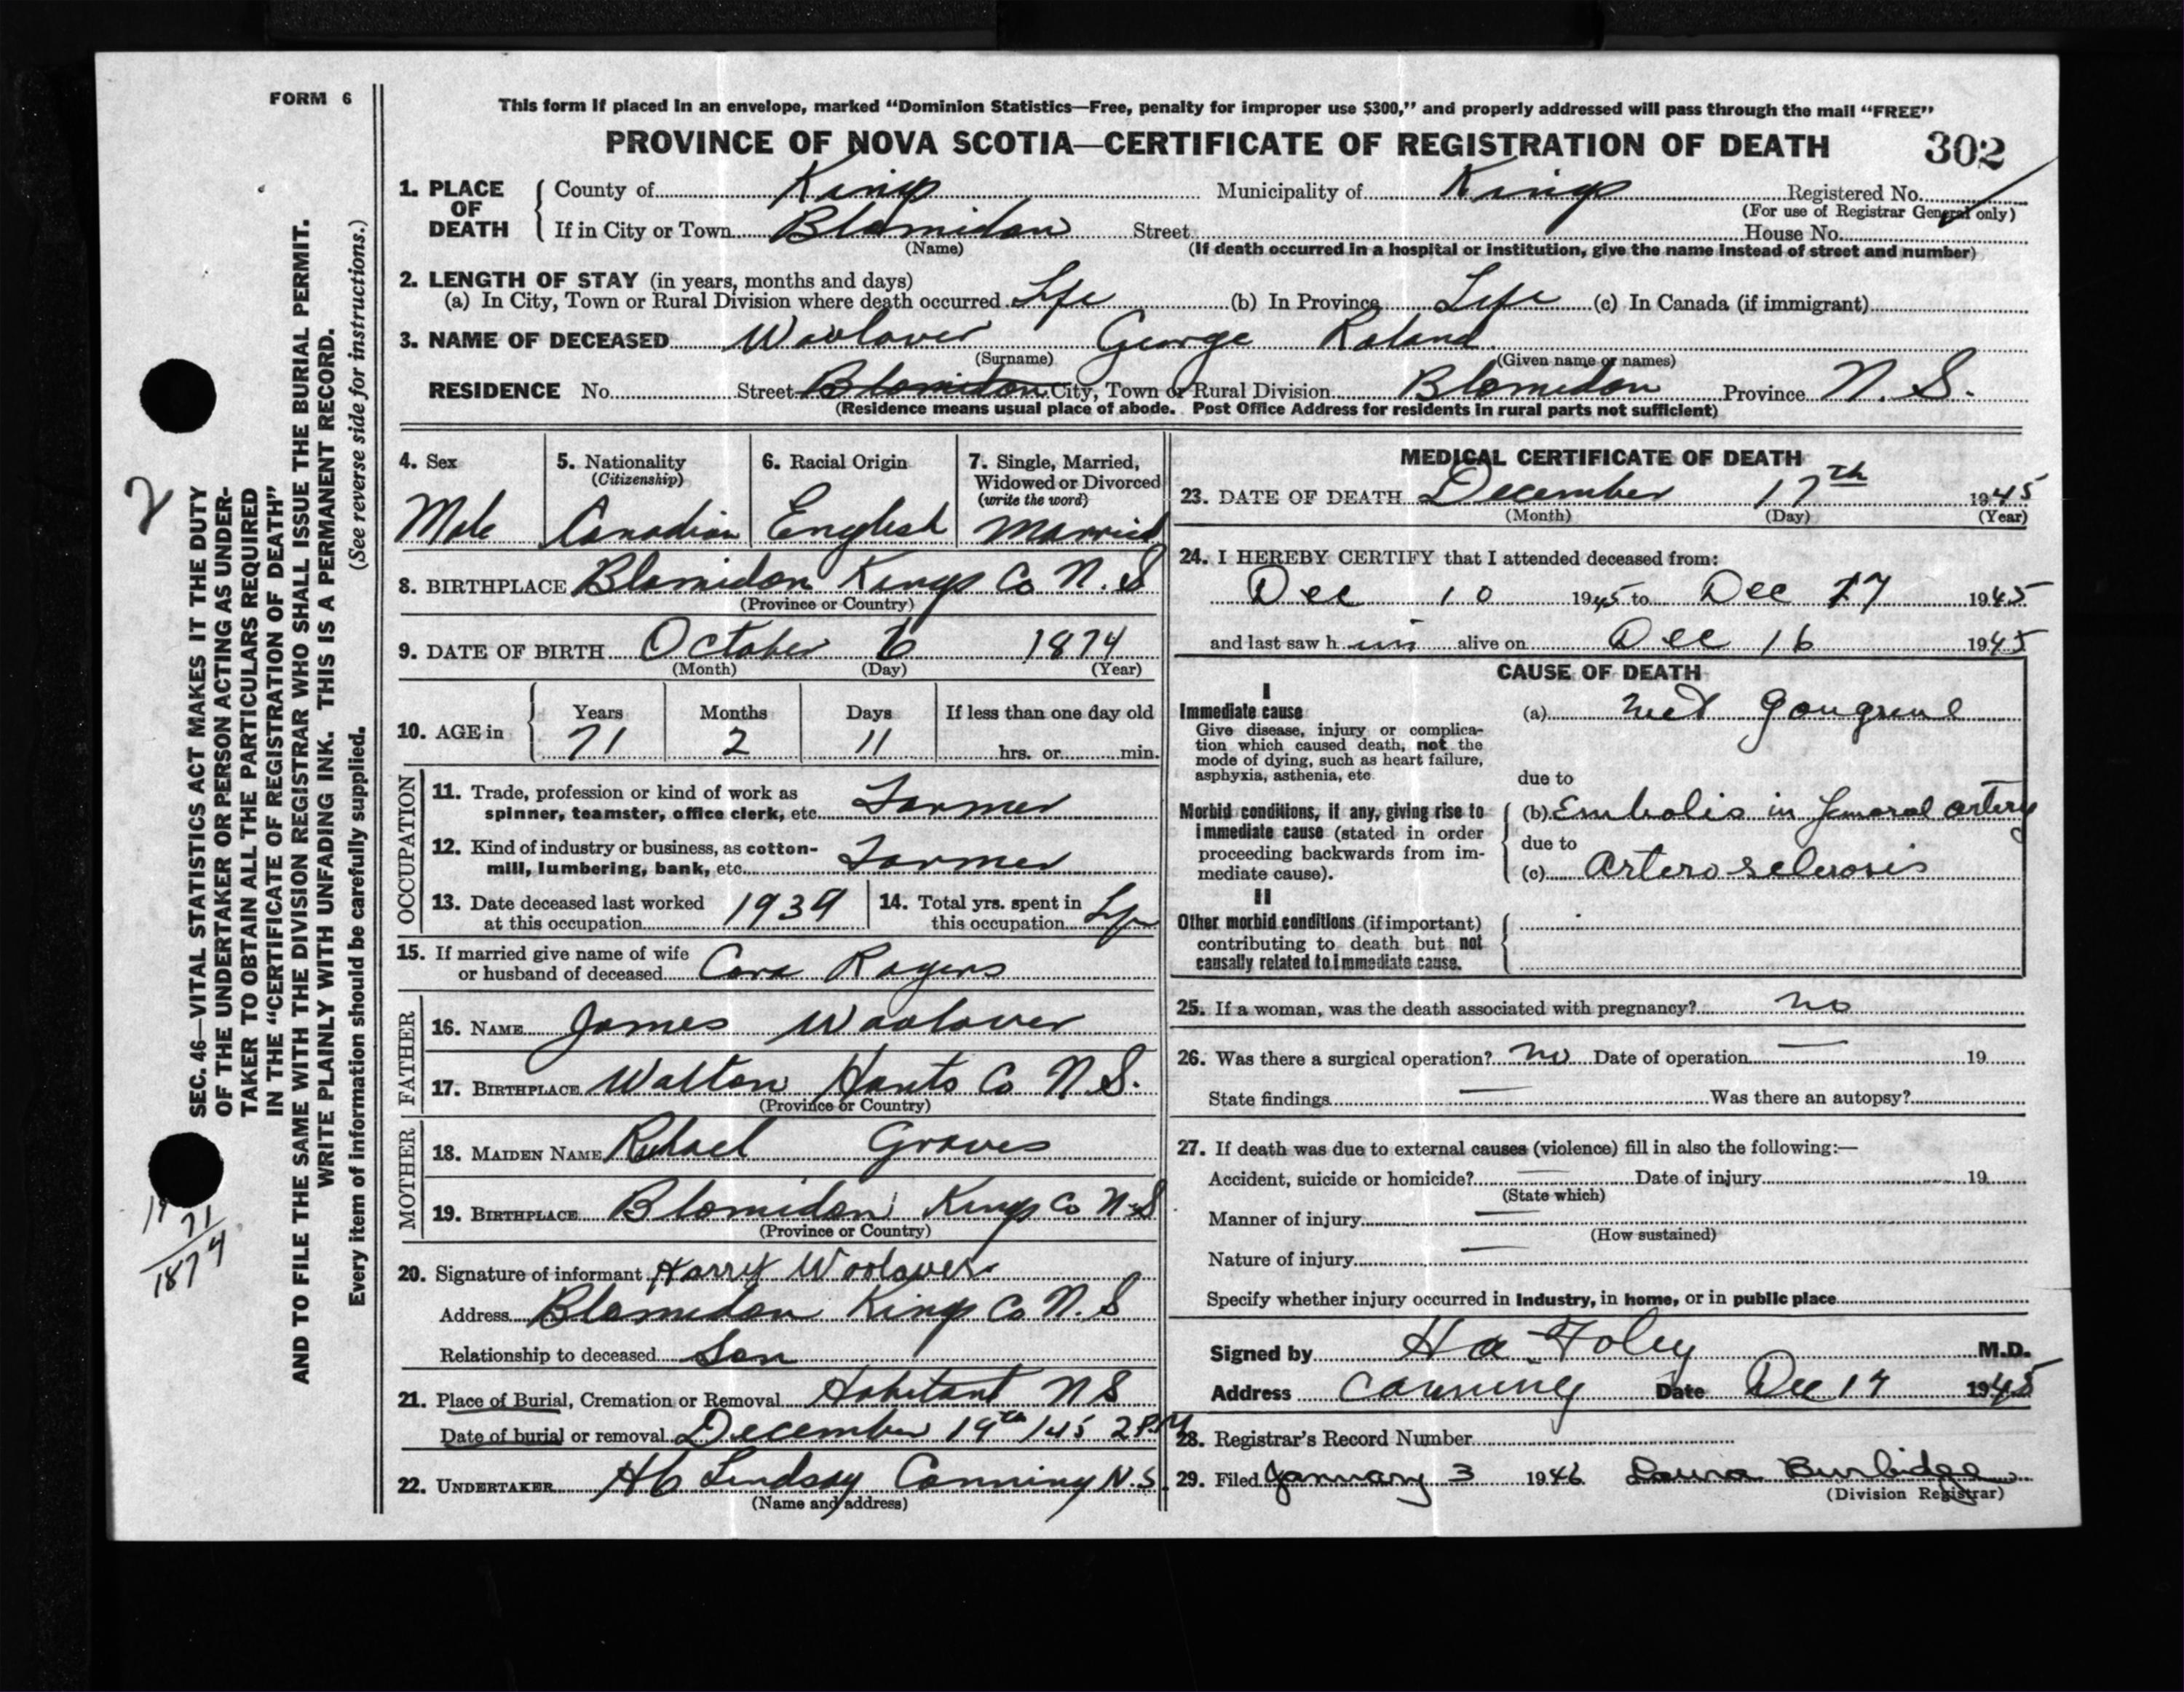 FORM 6
This form if placed in an envelope, marked “Dominion Statistics—Free, penalty for improper use $300,” and properly addressed will pass through the mail “FREE”
PROVINCE OF NOVA SCOTIA—CERTIFICATE OF REGISTRATION OF DEATH 302
1. PLACE OF DEATH County of Kings Municipality of Kings Registered No.
(For use of Registrar General only)
If in City or Town Blomidon Street House No.
(Name) (If death occurred in a hospital or institution, give the name instead of street and number)
2. LENGTH OF STAY (in years, months and days)
(a) In City, Town or Rural Division where death occurred Life (b) In Province Life (c) In Canada (if immigrant)
3. NAME OF DECEASED Woolover George Roland
(Surname) (Given name or names)
RESIDENCE No. Street Blomidon City, Town or Rural Division Blomidon Province N. S.
(Residence means usual place of abode. Post Office Address for residents in rural parts not sufficient)
4. Sex
Male
5. Nationality
(Citizenship)
Canadian
6. Racial Origin
English
7. Single, Married,
Widowed or Divorced
(write the word)
Married
8. BIRTHPLACE Blomidon Kings Co N. S
(Province or Country)
9. DATE OF BIRTH October 6 1874
(Month) (Day) (Year)
10. AGE in Years Months Days If less than one day old
71 2 11 hrs. or min.
OCCUPATION
11. Trade, profession or kind of work as
spinner, teamster, office clerk, etc. Farmer
12. Kind of industry or business, as cotton-
mill, lumbering, bank, etc. Farmer
13. Date deceased last worked
at this occupation 1939
14. Total yrs. spent in
this occupation Life
15. If married give name of wife
or husband of deceased Cora Rogers
FATHER
16. NAME James Woolover
17. BIRTHPLACE Walton Hants Co N. S.
(Province or Country)
MOTHER
18. MAIDEN NAME Graves
19. BIRTHPLACE Blomidon Kings Co N. S
(Province or Country)
20. Signature of informant Harry Woolaver
Address Blomidon Kings Co N. S
Relationship to deceased Son
21. Place of Burial, Cremation or Removal Habitant N S
Date of burial or removal December 19th /45 2 P.M
22. UNDERTAKER Lindsay Canning N.S.
(Name and address)
MEDICAL CERTIFICATE OF DEATH
23. DATE OF DEATH December 17th 1945
(Month) (Day) (Year)
24. I HEREBY CERTIFY that I attended deceased from:
Dec 10 1945 to Dec 17 1945
and last saw h im alive on Dec 16 1945
CAUSE OF DEATH
I
Immediate cause
Give disease, injury or complica-
tion which caused death, not the
mode of dying, such as heart failure,
asphyxia, asthenia, etc.
(a) wet Gangrene
due to
Morbid conditions, if any, giving rise to
immediate cause (stated in order
proceeding backwards from im-
mediate cause).
(b) Embolis in femoral artery
due to
(c) Arterosclerosis
II
Other morbid conditions (if important)
contributing to death but not
causally related to immediate cause.
25. If a woman, was the death associated with pregnancy? no
26. Was there a surgical operation? no Date of operation — 19
State findings — Was there an autopsy?
27. If death was due to external causes (violence) fill in also the following:—
Accident, suicide or homicide? — Date of injury 19
(State which)
Manner of injury —
(How sustained)
Nature of injury —
Specify whether injury occurred in Industry, in home, or in public place
Signed by H a Foley M.D.
Address Canning Date Dec 17 1945
28. Registrar's Record Number
29. Filed January 3 1946 Laura Burbidge
(Division Registrar)
SEC. 46—VITAL STATISTICS ACT MAKES IT THE DUTY
OF THE UNDERTAKER OR PERSON ACTING AS UNDER-
TAKER TO OBTAIN ALL THE PARTICULARS REQUIRED
IN THE “CERTIFICATE OF REGISTRATION OF DEATH”
AND TO FILE THE SAME WITH THE DIVISION REGISTRAR WHO SHALL ISSUE THE BURIAL PERMIT.
WRITE PLAINLY WITH UNFADING INK. THIS IS A PERMANENT RECORD.
Every item of information should be carefully supplied. (See reverse side for instructions.)
2
71
1874